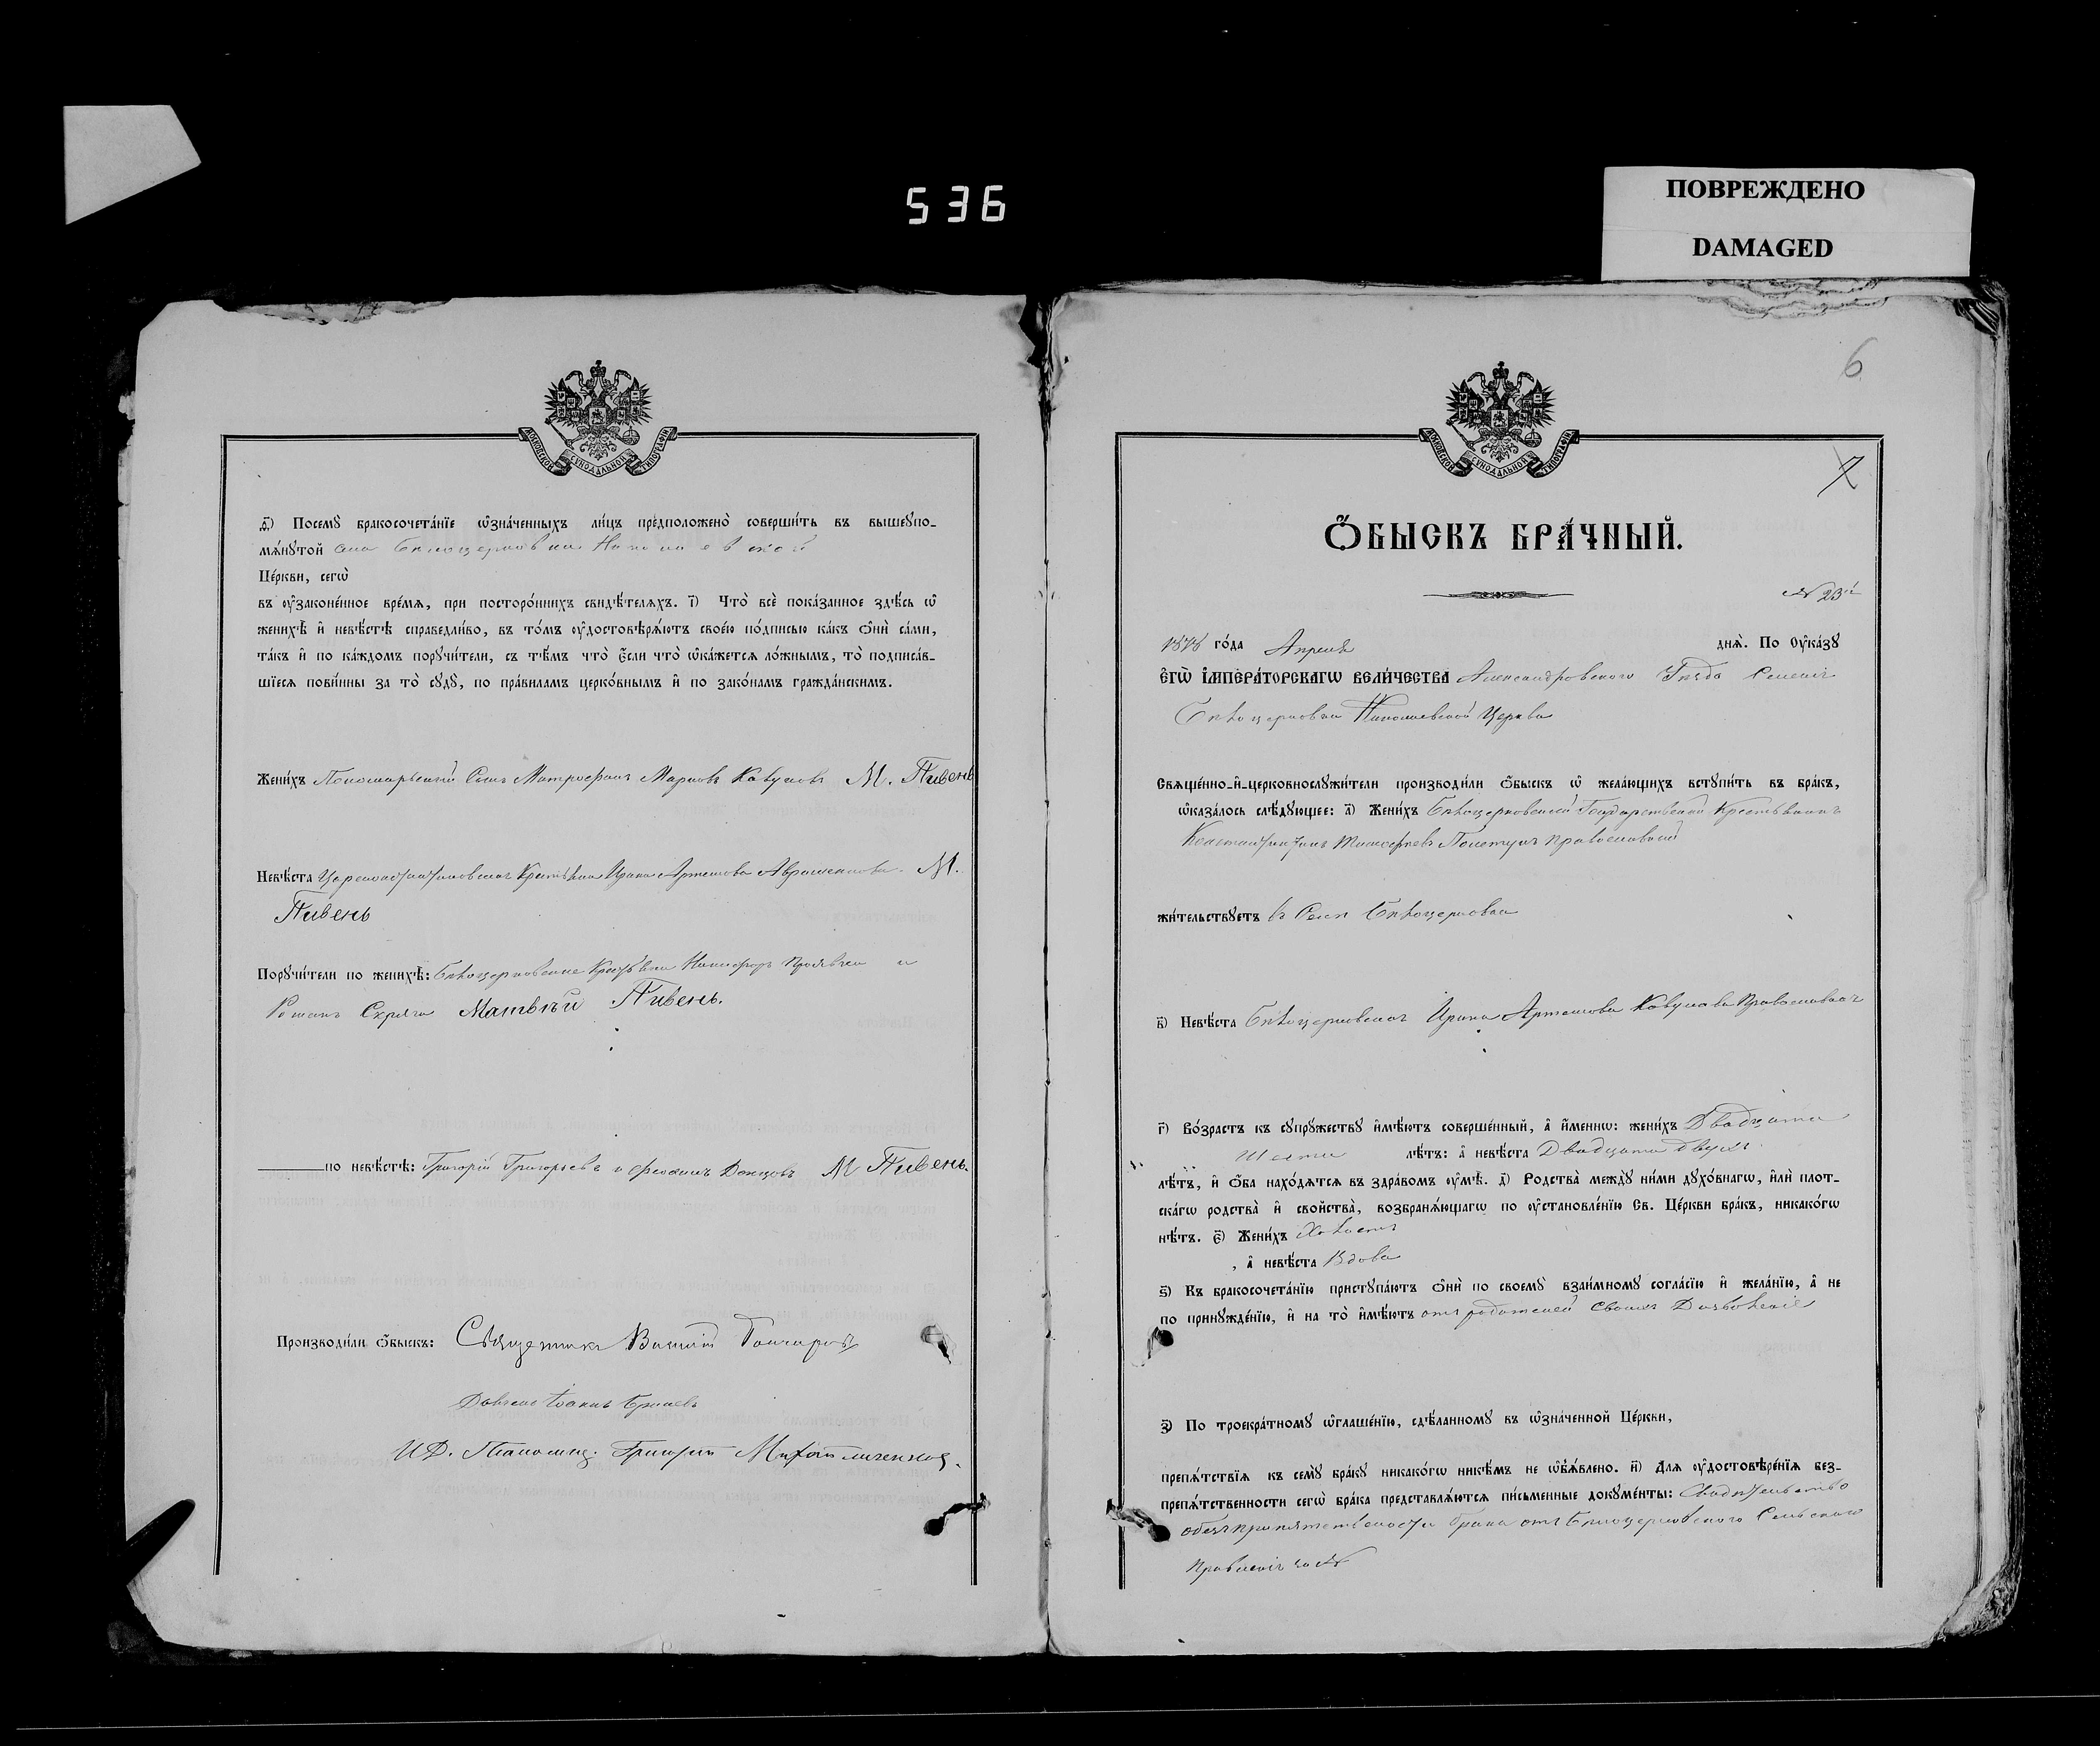 536
ПОВРЕЖДЕНО
DAMAGED
МОСКОВСКОЙ СѴНОДАЛЬНОЙ ТИПОГРАФІИ
ѳ҃) Посемꙋ бракосочета́нїе ѡ҆зна́ченныхъ ли́цъ предположено̀ соверши́ть въ вышеꙋпо-
мѧ́нꙋтой села Бѣлоцерковки Николаевской
Це́ркви, сегѡ̀
въ ᲂу҆законе́нное вре́мѧ, при посторо́ннихъ свидѣ́телѧхъ. і҃) Что̀ всѐ пока́занное здѣ́сь ѡ҆
женихѣ̀ и҆ невѣ́стѣ справедли́во, въ то́мъ ᲂу҆достовѣрѧ́ютъ свое́ю по́дписью ка́къ ѻ҆нѝ са́ми,
та́къ и҆ по ка́ждомъ порꙋчи́тели, съ тѣ́мъ что̀ є҆́сли что̀ ѡ҆ка́жетсѧ ло́жнымъ, то̀ подписа́в-
шїесѧ пови́нны за то̀ сꙋдꙋ̀, по пра́виламъ церко́внымъ и҆ по зако́намъ гражда́нскимъ.
Жени́хъ Пономарьский Сынъ Митрофанъ Марковъ Кавуновъ М. Пивень
Невѣ́ста Ирина Артемова Авраменкова. М.
Пивень
Порꙋчи́тели по женихѣ̀: Бѣлоцерковские Крестьяне Никифор и
Романъ Скряга Матвѣй Пивень.
по невѣ́стѣ: Григорій Григорьевъ и Донцовъ М Пивень.
Производи́ли ѻ҆́быскъ: Священникъ Василій Гончаровъ
Іоаннъ
И.Д. Пономар. Григорій
6
7
МОСКОВСКОЙ СѴНОДАЛЬНОЙ ТИПОГРАФІИ
Ѻ҆́БЫСКЪ БРА́ЧНЫЙ.
№ 23й
1878 го́да Апреля днѧ̀. По Оу҆ка́зꙋ
Є҆ГѠ̀ І҆МПЕРА́ТОРСКАГѠ ВЕЛИ́ЧЕСТВА Александровского Уѣзда Селенія
Бѣлоцерковки Николаевской Церкви
Свѧще́нно-и҆-церковнослꙋжи́тели производи́ли ѻ҆́быскъ ѡ҆ жела́ющихъ встꙋпи́ть въ бра́къ,
ѡ҆каза́лось слѣ́дꙋющее: а҃) Жени́хъ Бѣлоцерковский Государственный Крестьянинъ
Константинъ Тимофеевъ Православный
жи́тельствꙋетъ въ Селѣ Бѣлоцерковки
в҃) Невѣ́ста Бѣлоцерковская Ирина Артемова Кавунова Православная
г҃) Во́зрастъ къ сꙋпрꙋ́жествꙋ и҆мѣ́ютъ соверше́нный, а҆̀ и҆́менно: жени́хъ Двадцати
шести лѣ́тъ: а҆̀ невѣ́ста Двадцати двухъ
лѣ́тъ, и҆ ѻ҆́ба нахо́дѧтсѧ въ здра́вомъ ᲂу҆мѣ̀. д҃) Родства̀ междꙋ̀ ни́ми дꙋхо́внагѡ, и҆лѝ плот-
ска́гѡ родства̀ и҆ сво́йства̀, возбранѧ́ющагѡ по ᲂу҆становле́нїю Св. Це́ркви бра́къ, никако́гѡ
нѣ́тъ. є҃) Жени́хъ Холостъ
, а҆̀ невѣ́ста Вдова
ѕ҃) Къ бракосочета́нїю пристꙋпа́ютъ ѻ҆нѝ по своемꙋ̀ взаи́мномꙋ согла́сїю и҆ жела́нїю, а҆̀ не
по принꙋжде́нїю, и҆ на то̀ и҆мѣ́ютъ отъ родителей своихъ Дозволеніе
з҃) По троекра́тномꙋ ѡ҆глаше́нїю, сдѣ́ланномꙋ въ ѡ҆зна́ченной Це́ркви,
препѧ́тствїѧ къ семꙋ̀ бра́кꙋ никако́гѡ никѣ́мъ не ѡ҆б̾ѧ́влено. и҃) Длѧ ᲂу҆достовѣ́ре́нїѧ без-
препѧ́тственности сегѡ̀ бра́ка представлѧ́ютсѧ пи́сьменные докꙋме́нты: Свидѣтельство
о безпрепятственности брака отъ Бѣлоцерковского Сельского
Правленія за №